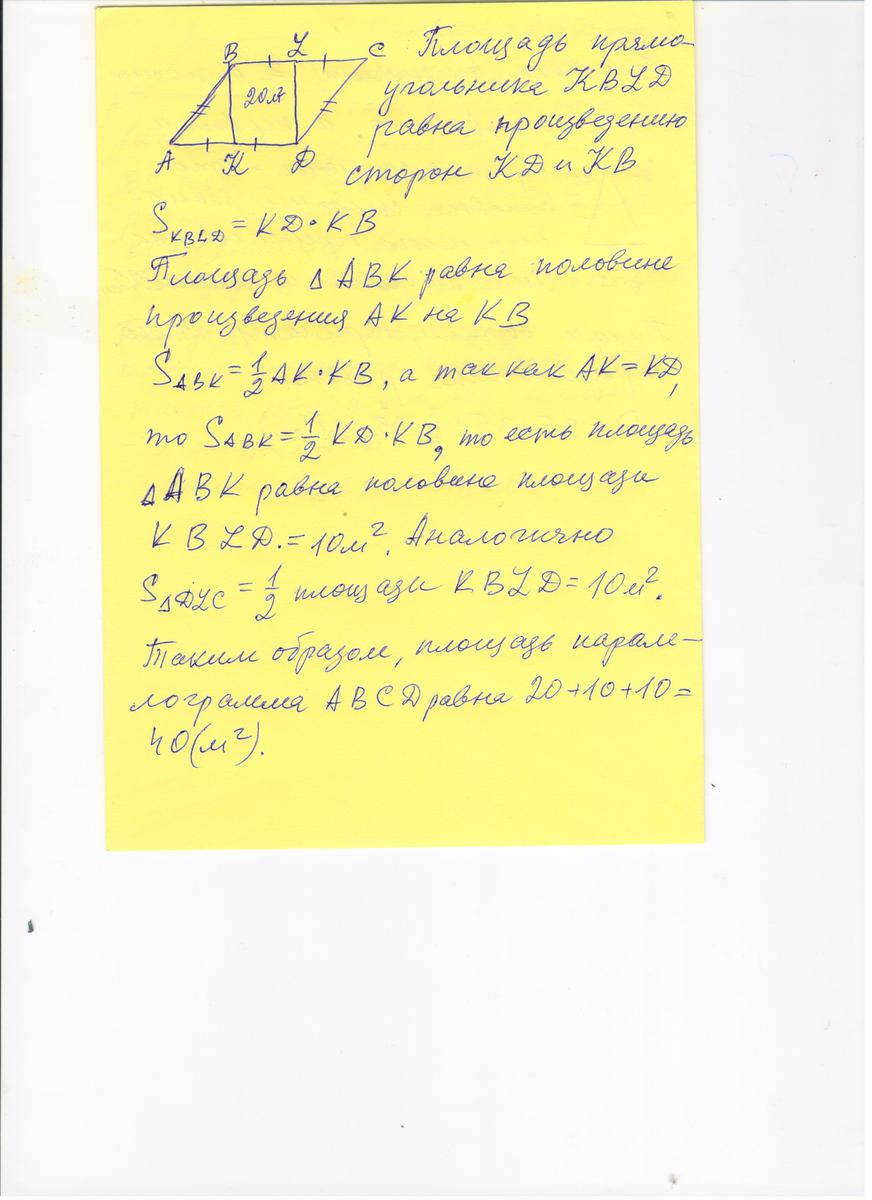 B L C Площадь прямо-
20м² угольника KBLD
равна произведению
A K D сторон KD и KB
S KBLD = KD · KB
Площадь △ ABK равна половине
произведения AK на KB
S ABK = 1/2 AK · KB, а так как AK = KD,
то S ABK = 1/2 KD · KB, то есть площадь
△ ABK равна половине площади
KBLD. = 10м². Аналогично
S △DLC = 1/2 площади KBLD = 10м².
Таким образом, площадь парале-
лограмма ABCD равна 20+10+10=
40(м²).